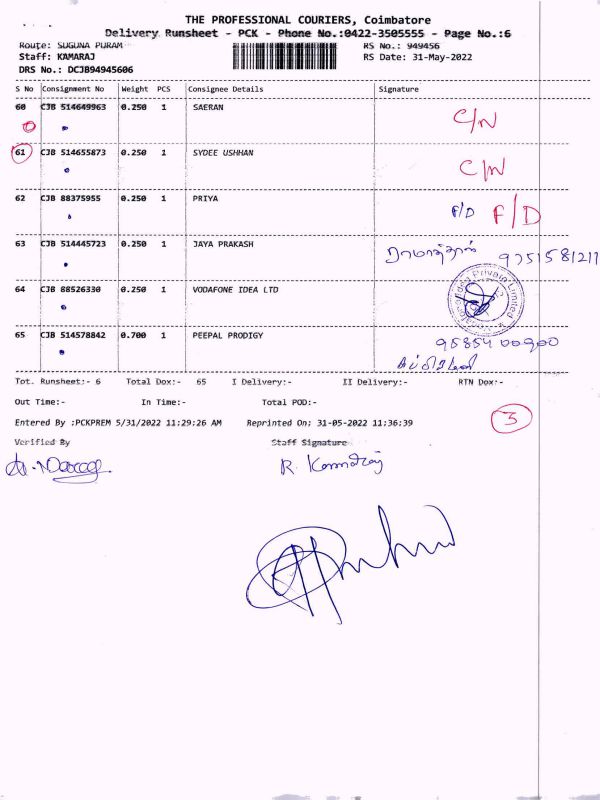 THE PROFESSIONAL COURIERS, Coimbatore
Delivery Runsheet - PCK - Phone No.:0422-3505555 - Page No.:6
Route: SUGUNA PURAM RS No.: 949456
Staff: KAMARAJ RS Date: 31-May-2022
DRS No.: DCJB94945606
S No Consignment No Weight PCS Consignee Details Signature
60 CJB 514649963 0.250 1 SAERAN C/N
61 CJB 514655873 0.250 1 SYDEE USHHAN C/N
62 CJB 88375955 0.250 1 PRIYA F/D F/D
63 CJB 514445723 0.250 1 JAYA PRAKASH
64 CJB 88526330 0.250 1 VODAFONE IDEA LTD Private Limited
65 CJB 514578842 0.700 1 PEEPAL PRODIGY
Tot. Runsheet:- 6 Total Dox:- 65 I Delivery:- II Delivery:- RTN Dox:-
Out Time:- In Time:- Total POD:-
3
Entered By :PCKPREM 5/31/2022 11:29:26 AM Reprinted On: 31-05-2022 11:36:39
Verified By Staff Signature
R. Kamaraj